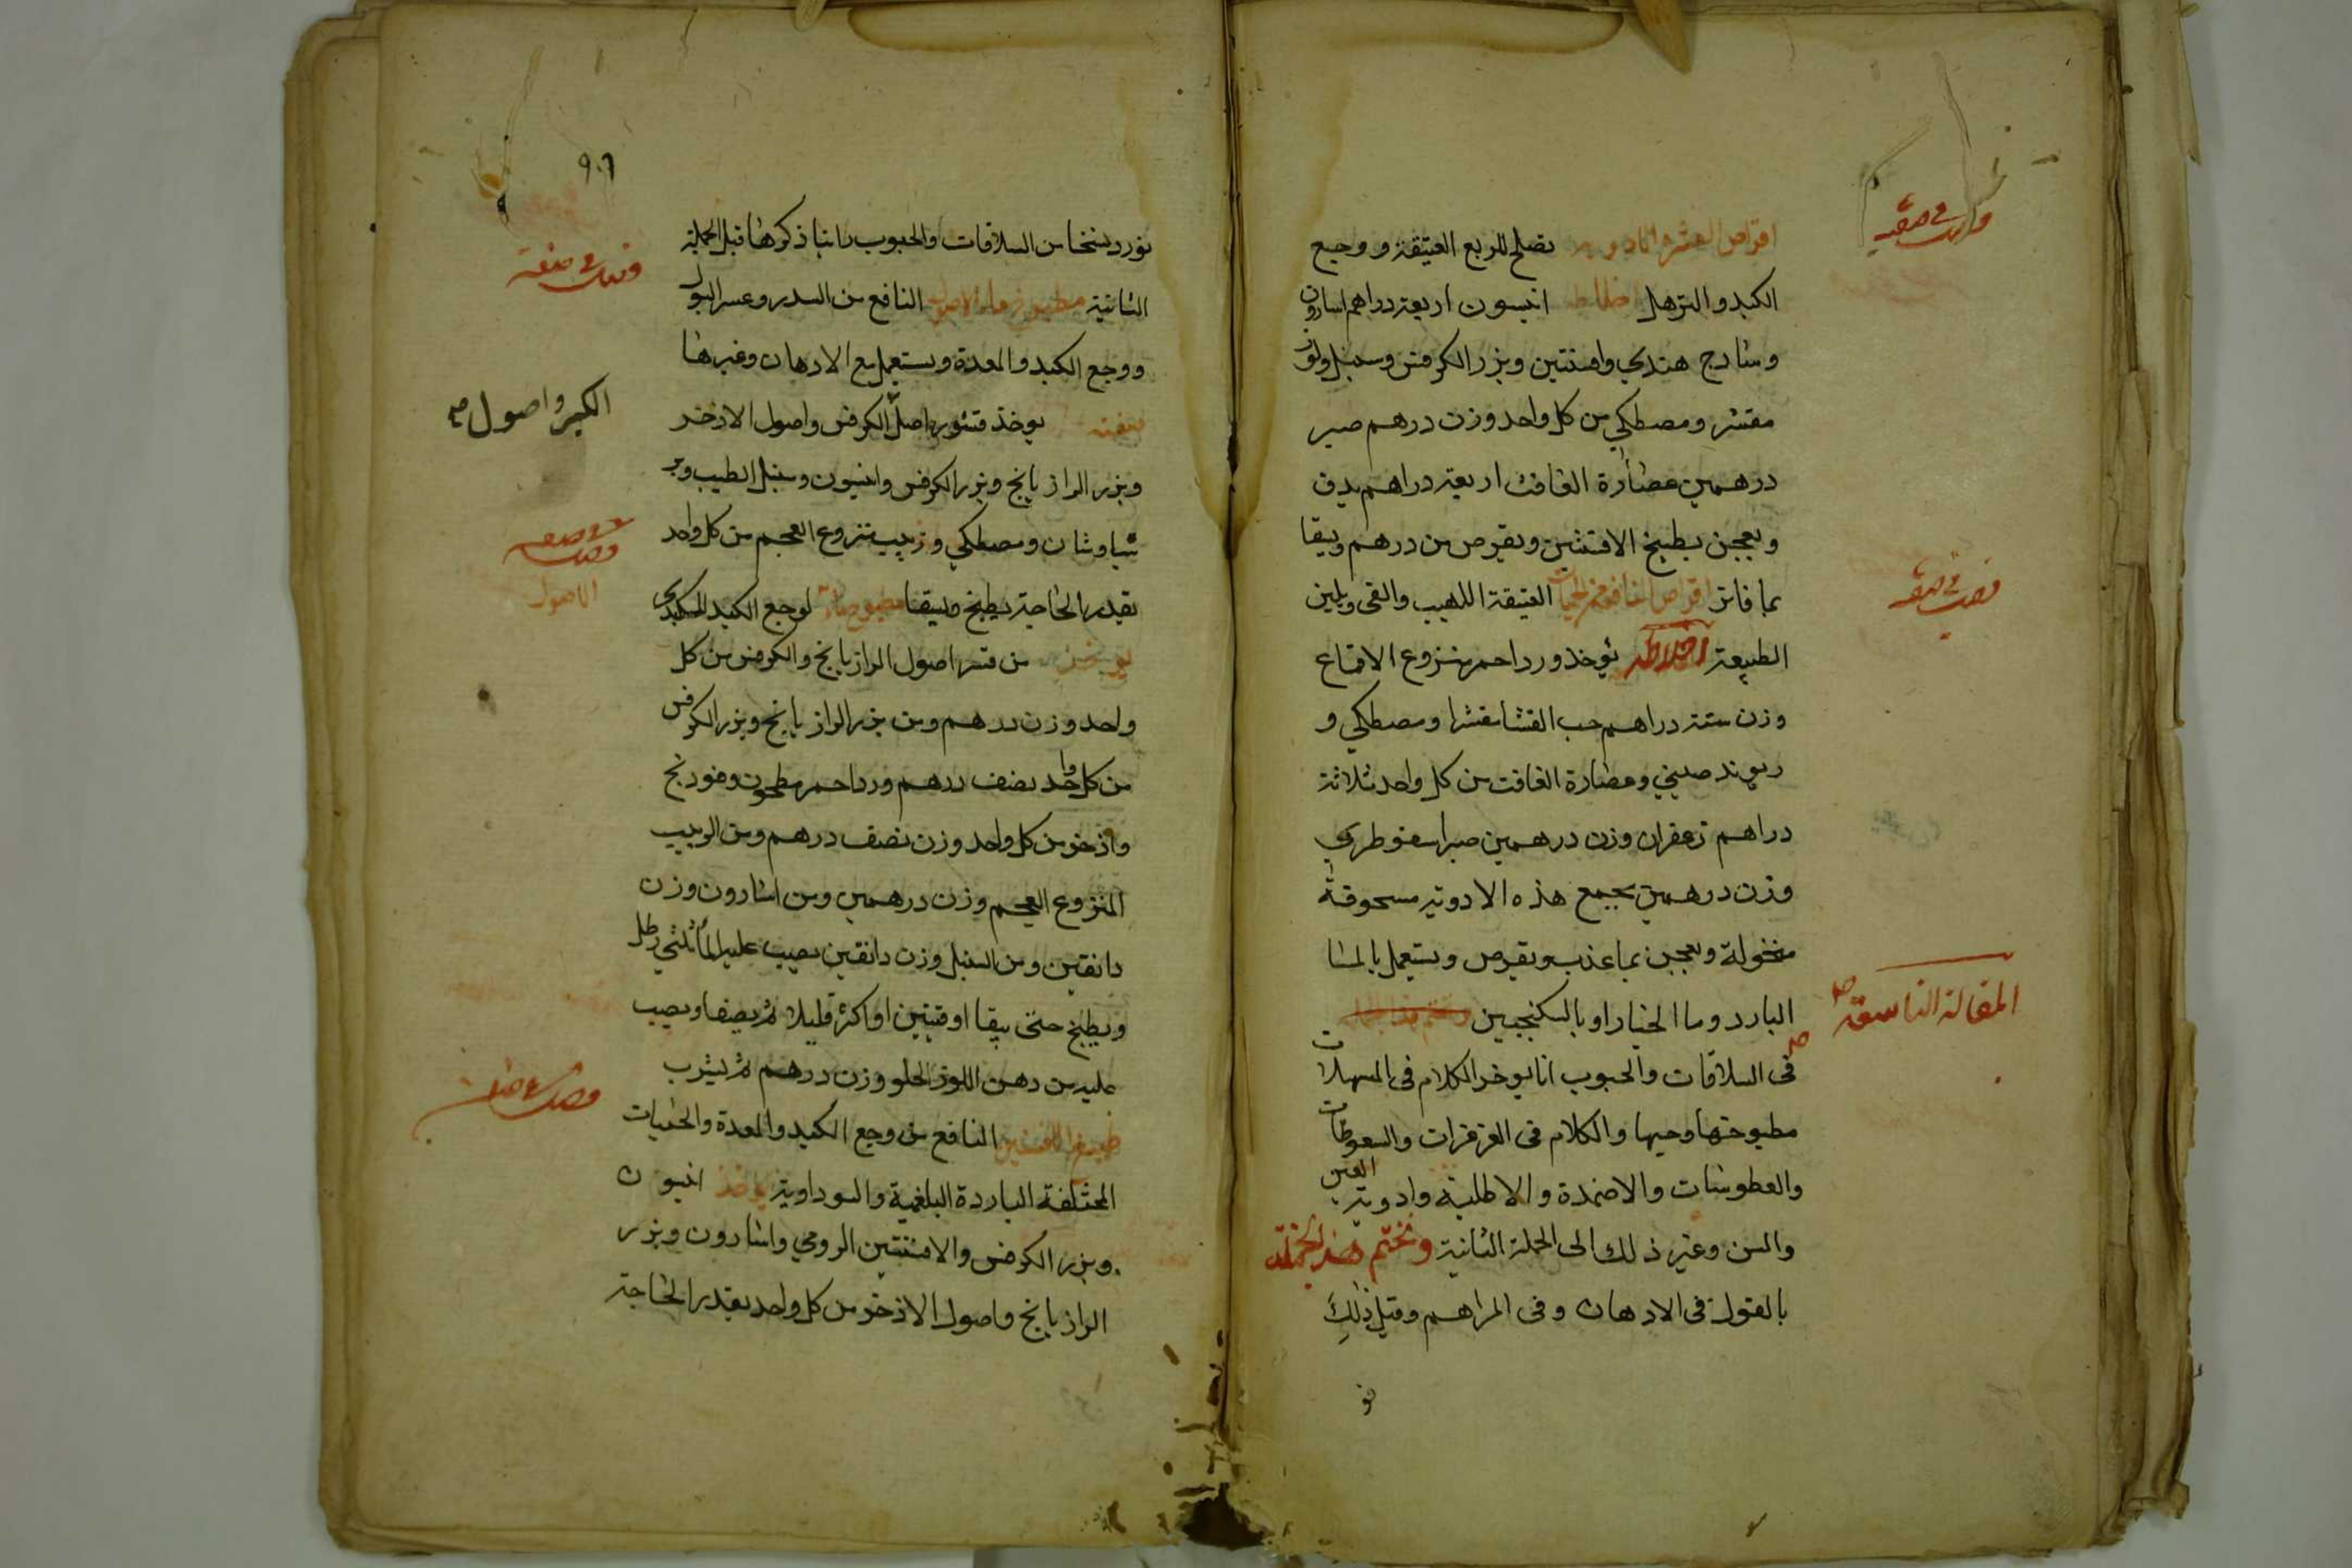 اقراص العشرة الادوية تصلح للربع العتيقة ووجع
الكبد والترهل اخلاطه انيسون اربعة دراهم اسارون
وسادج هندي وافسنتين وبزر الكرفس وسنبل ولوز
مقشر ومصطكي من كل واحد وزن درهم صبر
درهمين عصارة الغافث اربعة دراهم يدق
ويعجن بطبيخ الافسنتين ويقرص من درهم ويسقا
بما فاتر اقراص النافع من الحميات العتيقة اللهيب والقى ويلين
الطبيعة اخلاطه يوخذ ورد احمر منزوع الاقماع
وزن ستة دراهم حب القثا مقشرا ومصطكي و
ريوند صيني وعصارة الغافت من كل واحد ثلاثة
دراهم زعفران وزن درهمين صبر اسقوطري
وزن درهمين يجمع هذه الادوية مسحوقة
منخولة ويعجن بما عذب ويقرص ويستعمل بالما
البارد وما الخيار او بالسكنجبين
المقالة التاسعة
فى السلاقات والحبوب انا نوخر الكلام فى المسهلات
مطبوخها وحبها والكلام فى الغرغرات والسعوطات
والعطوسات والاضمدة والاطلية وادوية العين
والسن وغير ذلك الى الجملة الثانية ونختم هذه الجملة
بالقول فى الادهان وفى المراهم وقبل ذلك
٩٠٦
نورد نسخا من السلاقات والحبوب راينا ذكرها قبل الجملة
الثانية مطبوخ ماء الاصول النافع من السدد وعسر البول
ووجع الكبد والمعدة ويستعمل مع الادهان وغيرها
صفته يوخذ قشور اصل الكرفس واصول الاذخر
الكبر واصول
وبزر الرازيانج وبزر الكرفس وانيسون وسنبل الطيب وبر
شياوشان ومصطكي وزبيب منزوع العجم من كل واحد
بقدر الحاجة يطبخ ويسقا لوجع الكبد
يوخذ من قشر اصول الرازيانج والكرفس من كل
واحد وزن درهم ومن بزر الرازيانج وبزر الكرفس
من كل واحد نصف درهم ورد احمر مطحون وفودنج
واذخر من كل واحد وزن نصف درهم ومن الزبيب
المنزوع العجم وزن درهمين ومن اسارون وزن
دانقين ومن السنبل وزن دانقين يصب عليه الماء ثلثي رطل
ويطبخ حتى يبقا اوقيتين او اكثر قليلا ثم يصفا ويصب
عليه من دهن اللوز الحلو وزن درهم ثم يشرب
طبيخ الافسنتين النافع من وجع الكبد والمعدة والحميات
المختلفة الباردة البلغمية والسوداوية يوخذ انيسون
وبزر الكرفس والافسنتين الرومي واسارون وبزر
الرازيانج واصول الاذخر من كل واحد بقدر الحاجة